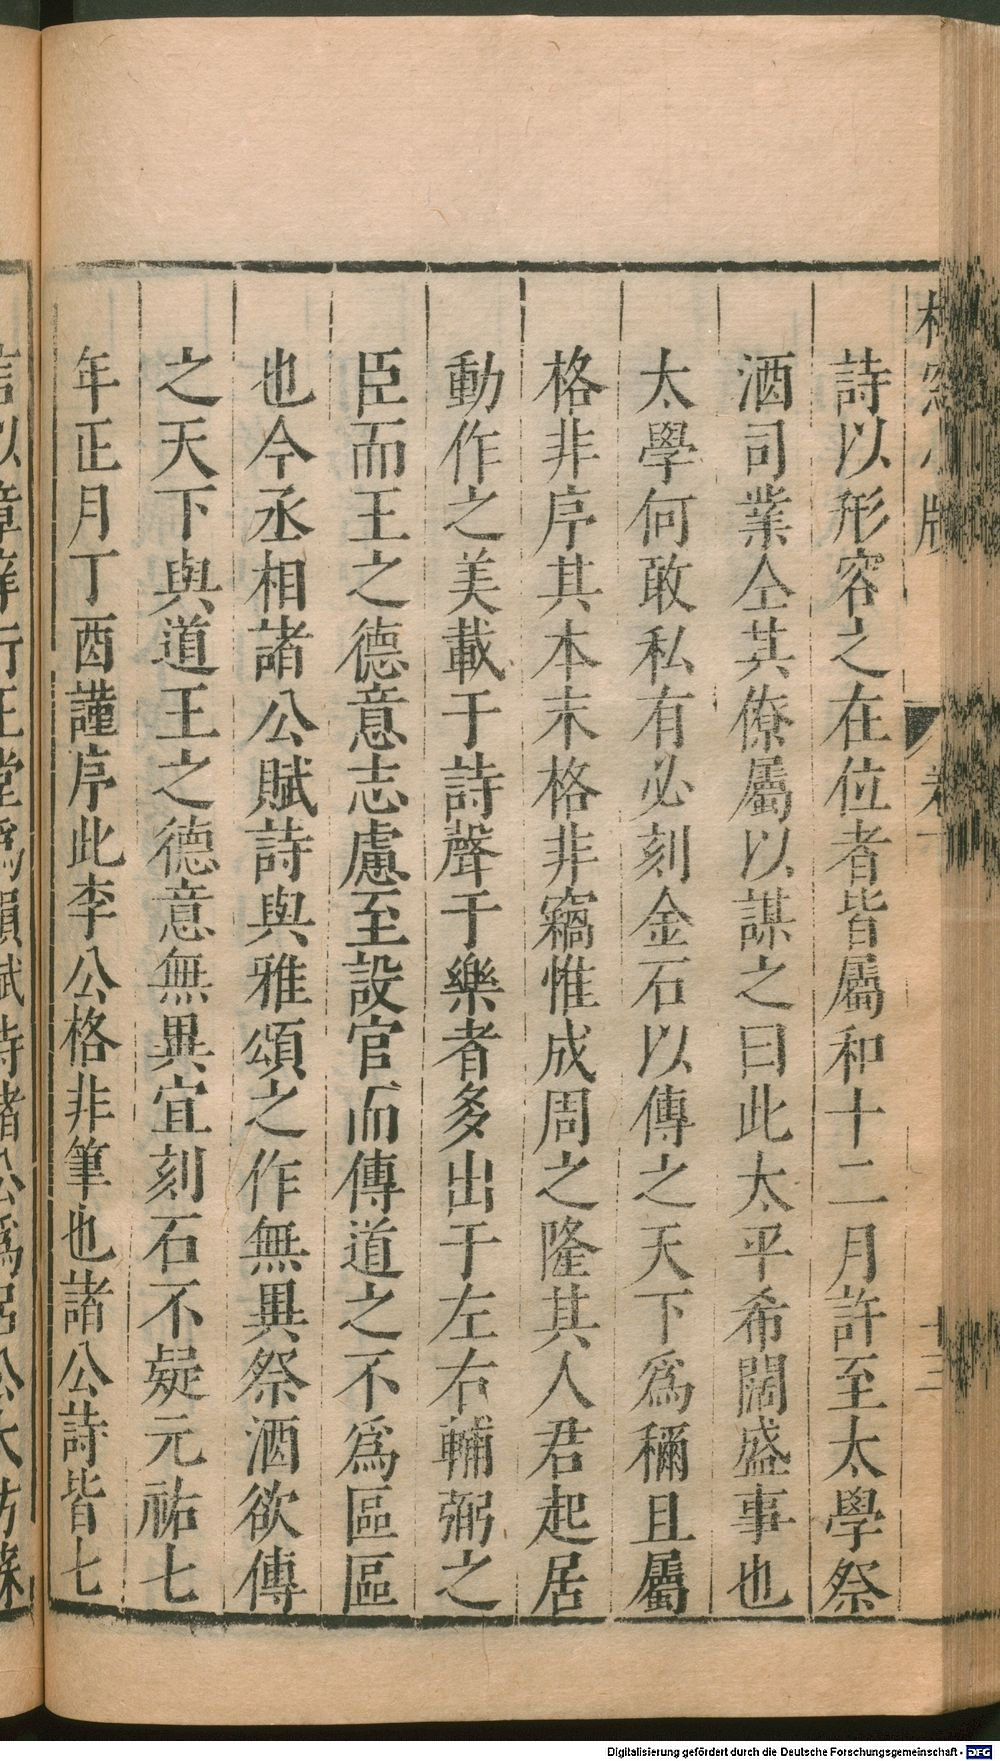 卷一
十三
詩以形容之在位者皆屬和十二月許至太學祭
酒司業仝其僚屬以謀之曰此太平希闊盛事也
太學何敢私有必刻金石以傳之天下爲稱且屬
格非序其本末格非竊惟成周之隆其人君起居
動作之美載于詩聲于樂者多出于左右輔弼之
臣而王之德意志慮至設官而傳道之不爲區區
也今丞相諸公賦詩與雅頌之作無異祭酒欲傳
之天下與道王之德意無異宜刻石不疑元祐七
年正月丁酉謹序此李公格非筆也諸公詩皆七
言以章庠行王堂爲韻賦詩諸公爲呂公大防蘇
Digitalisierung gefördert durch die Deutsche Forschungsgemeinschaft - DFG